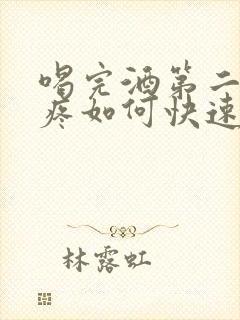 喝完酒第二
疼如何快速
林露虹